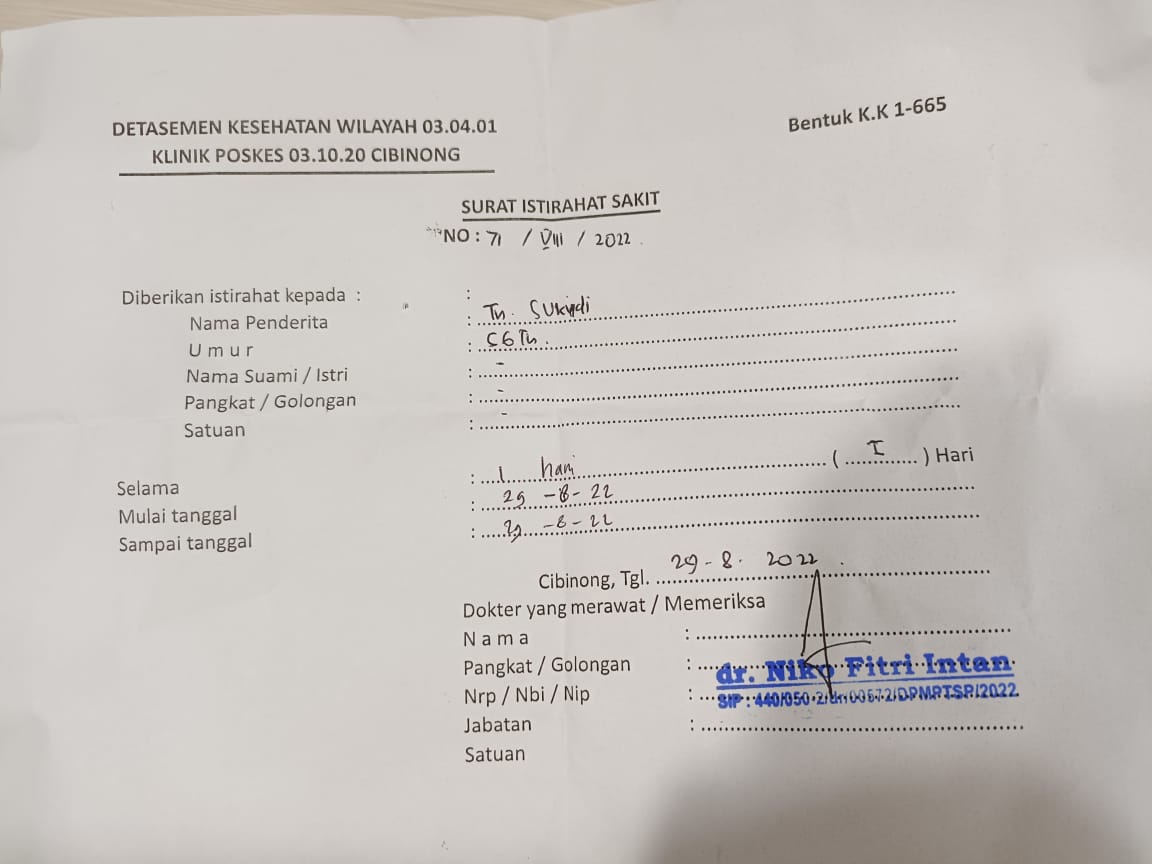 DETASEMEN KESEHATAN WILAYAH 03.04.01
KLINIK POSKES 03.10.20 CIBINONG
Bentuk K.K 1-665
SURAT ISTIRAHAT SAKIT
NO : 71 / VIII / 2022
Diberikan istirahat kepada : :
Nama Penderita : Tn. Sukiydi
U m u r : 56 Tn.
Nama Suami / Istri : -
Pangkat / Golongan : -
Satuan : -
Selama : 1 hari ( I ) Hari
Mulai tanggal : 29 -8- 22
Sampai tanggal : 29 -8-22
Cibinong, Tgl. 29-8. 2022
Dokter yang merawat / Memeriksa
N a m a :
Pangkat / Golongan : dr. Niko Fitri Intan
Nrp / Nbi / Nip : SIP : 440/050.2/dn/00572/DPMPTSP/2022
Jabatan :
Satuan